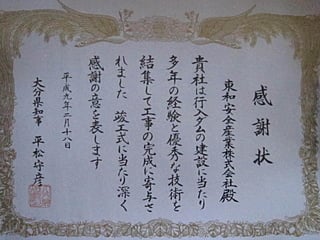 感謝状
東和安全産業株式会社殿
貴社は行入ダムの建設に当たり
多年の経験と優秀な技術を
結集して工事の完成に寄与さ
れました 竣工式に当たり深く
感謝の意を表します
平成九年二月十八日
大分県知事 平松守彦